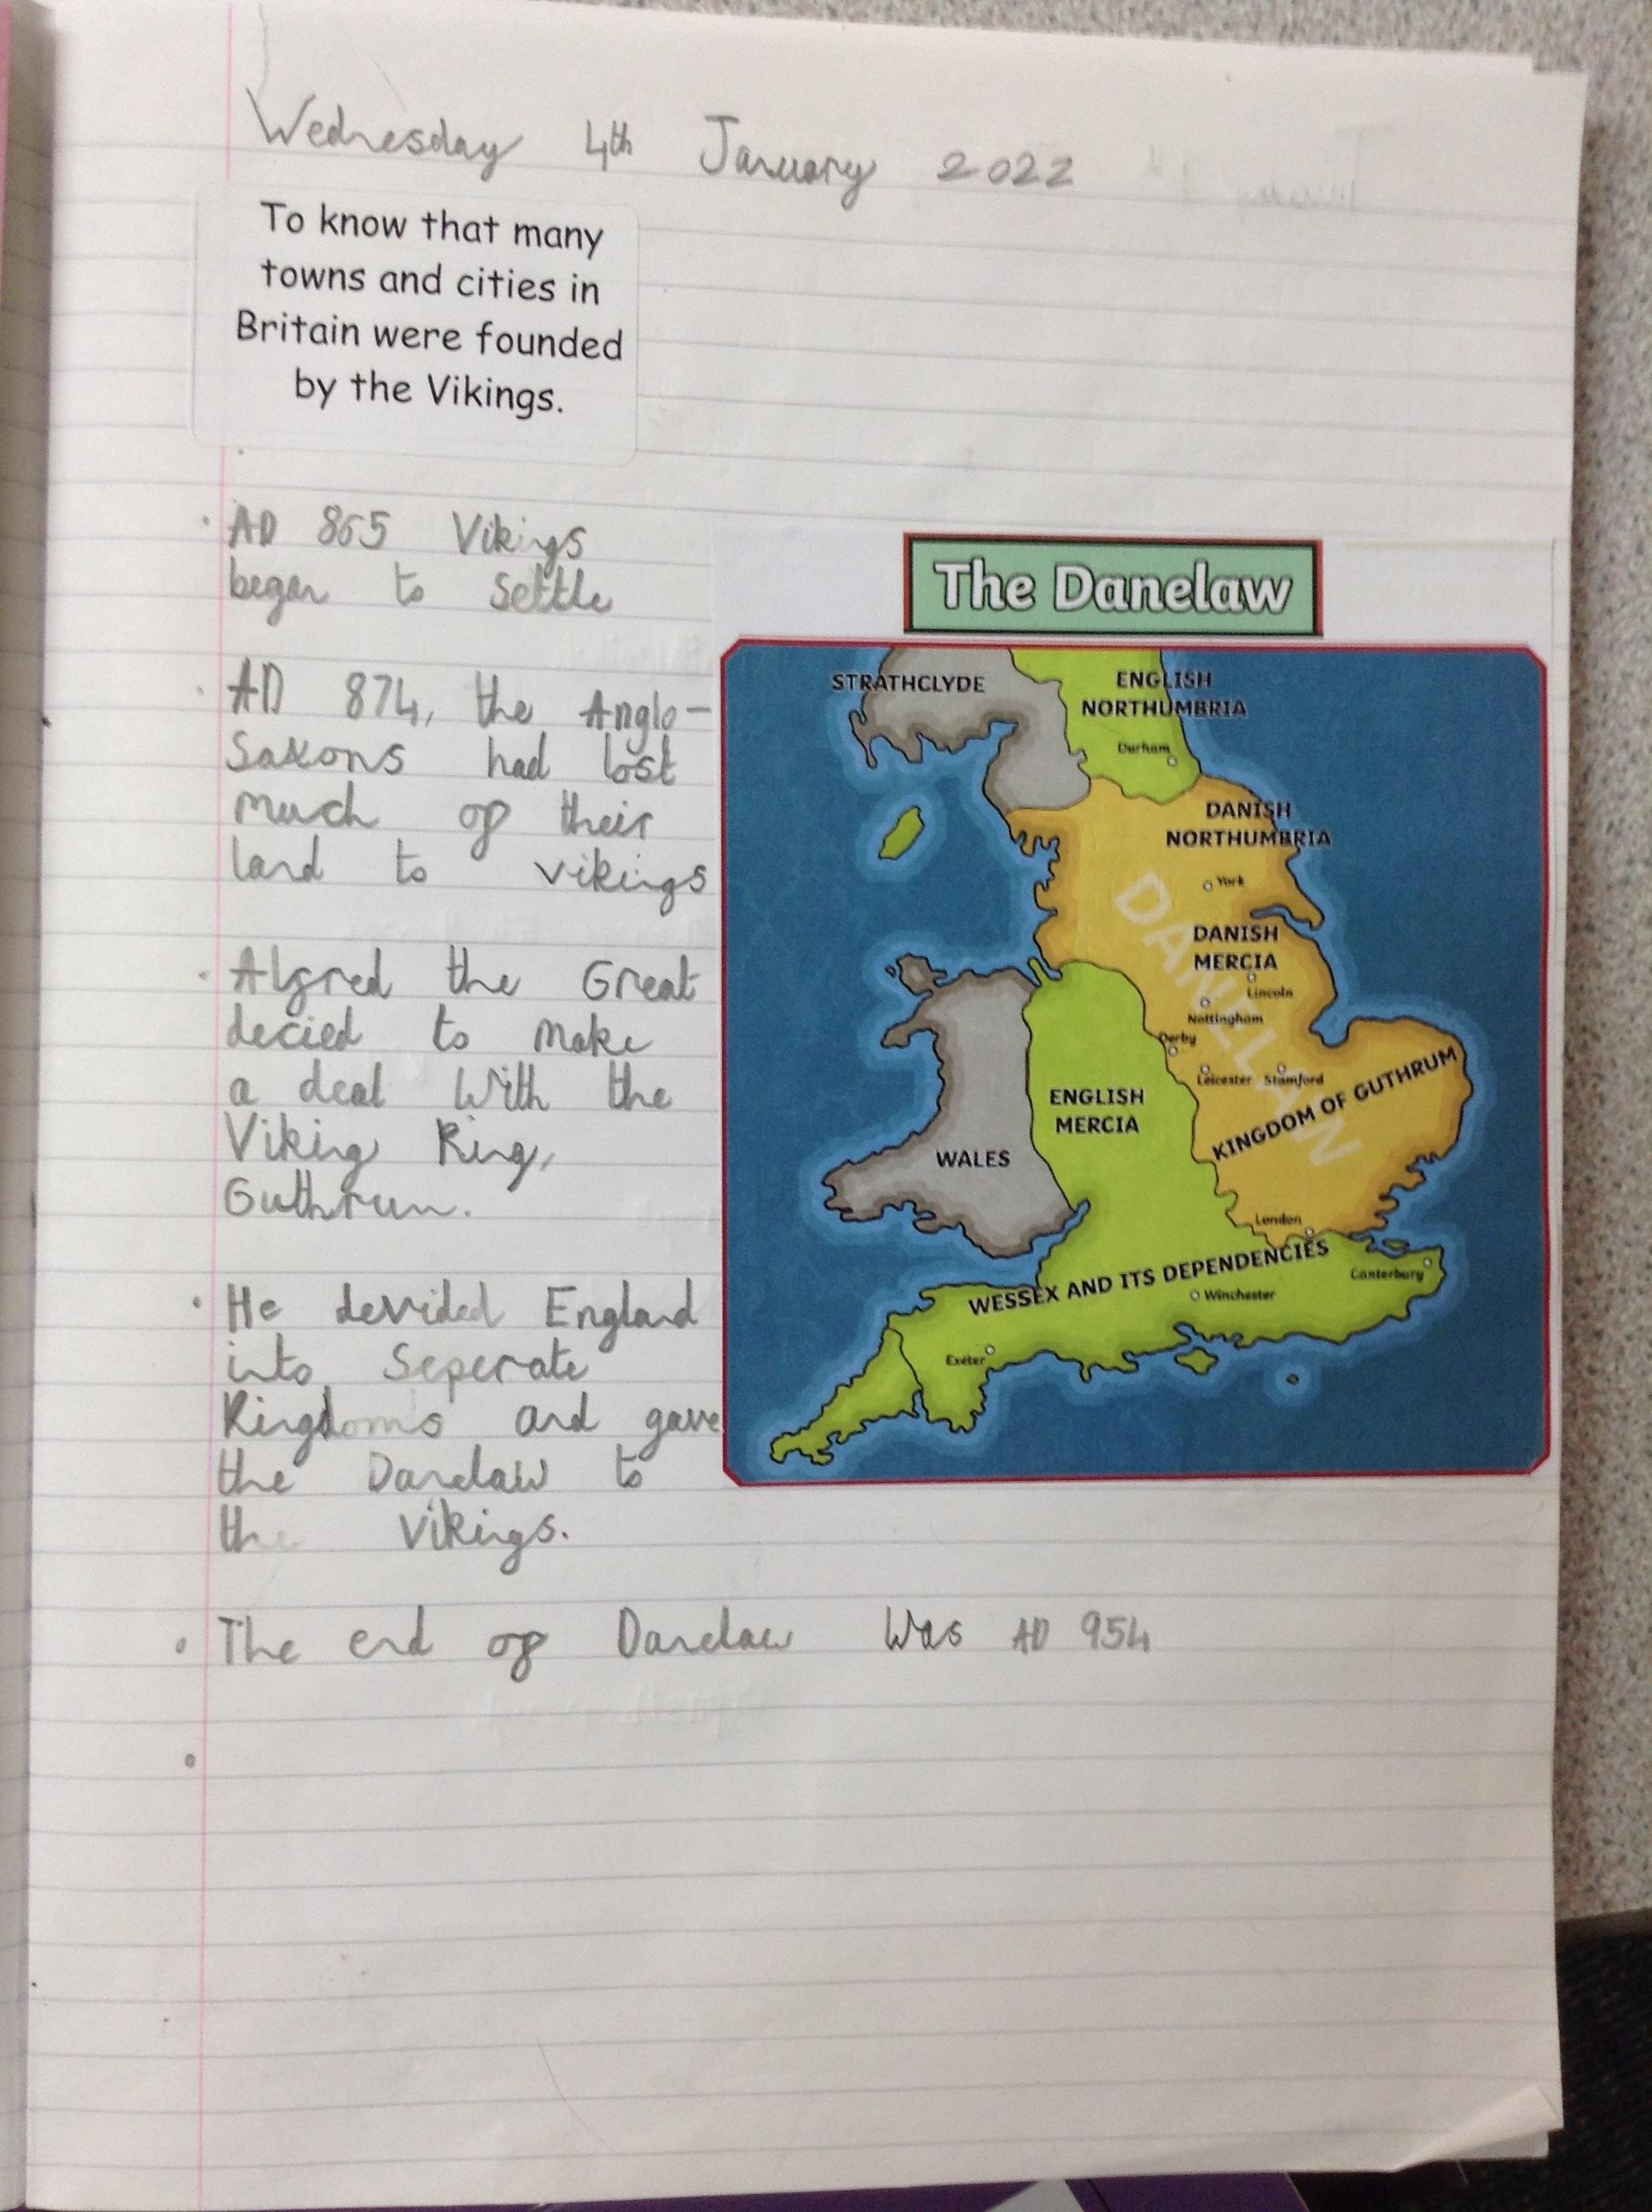 Wednesday 4th January 2022
To know that many
towns and cities in
Britain were founded
by the Vikings.
• AD 865 Vikings
began to settle
• AD 874, the Anglo-
Saxons had lost
much of their
land to vikings
• Alfred the Great
decied to make
a deal with the
Viking King,
Guthrum.
• He devided England
into seperate
Kingdoms and gave
the Danelaw to
the Vikings.
• The end of Danelaw was AD 954
•
The Danelaw
STRATHCLYDE
ENGLISH
NORTHUMBRIA
Durham
DANISH
NORTHUMBRIA
York
DANELAW
DANISH
MERCIA
Lincoln
Nottingham
Derby
Leicester Stamford
KINGDOM OF GUTHRUM
ENGLISH
MERCIA
WALES
London
WESSEX AND ITS DEPENDENCIES
Canterbury
Winchester
Exeter